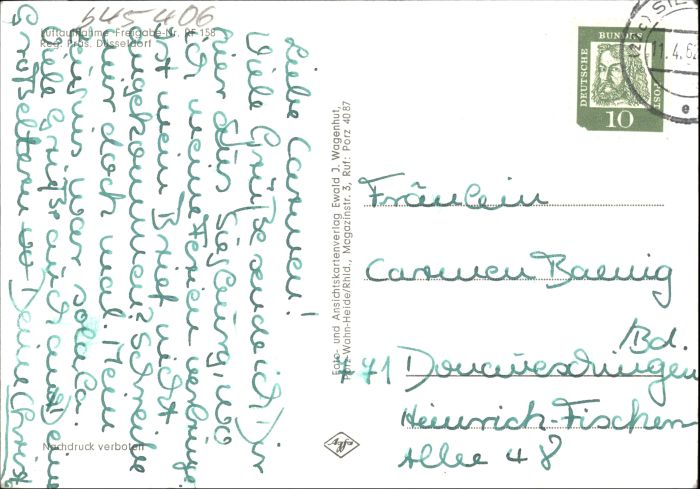 645406
Luftaufnahme Freigabe-Nr. RF 158
Reg. Präs. Düsseldorf
Liebe Carmen!
Viele Grüße sende ich Dir
hier aus Siegburg, wo
ich meine Ferien verbringe
Ist mein Brief nicht
angekommen? Schreibe
mir doch mal. Mein
Zeugnis war
Viele Grüße auch an Deine
Großeltern Deine Christ
Nachdruck verboten
Foto- und Ansichtskartenverlag Ewald J. Wagenhut,
Porz-Wahn-Heide/Rhld., Magazinstr. 3, Ruf: Porz 40 87
Agfa
DEUTSCHE BUNDESPOST
10
11.4.62
e
Fräulein
Carmen Baenig
/Bd.
771 Donaueschingen
Heinrich-Fischer
Allee 48